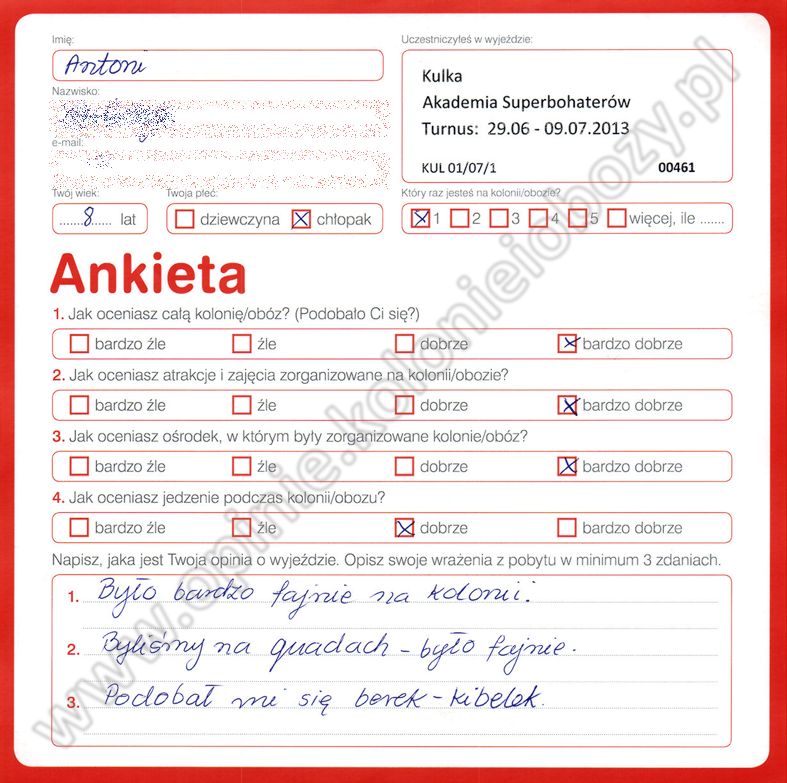 Imię:
Antoni
Uczestniczyłeś w wyjeździe:
Kulka
Akademia Superbohaterów
Turnus: 29.06 - 09.07.2013
KUL 01/07/1 00461
Nazwisko:
e-mail:
Twój wiek:
8 lat
Twoja płeć:
dziewczyna chłopak
Który raz jesteś na kolonii/obozie?
1 2 3 4 5 więcej, ile .......
Ankieta
1. Jak oceniasz całą kolonię/obóz? (Podobało Ci się?)
bardzo źle źle dobrze bardzo dobrze
2. Jak oceniasz atrakcje i zajęcia zorganizowane na kolonii/obozie?
bardzo źle źle dobrze bardzo dobrze
3. Jak oceniasz ośrodek, w którym były zorganizowane kolonie/obóz?
bardzo źle źle dobrze bardzo dobrze
4. Jak oceniasz jedzenie podczas kolonii/obozu?
bardzo źle źle dobrze bardzo dobrze
Napisz, jaka jest Twoja opinia o wyjeździe. Opisz swoje wrażenia z pobytu w minimum 3 zdaniach.
1. Było bardzo fajnie na kolonii.
2. Byliśmy na quadach - było fajnie.
3. Podobał mi się berek - kibelek.
www.opinie.kolonieiobozy.pl